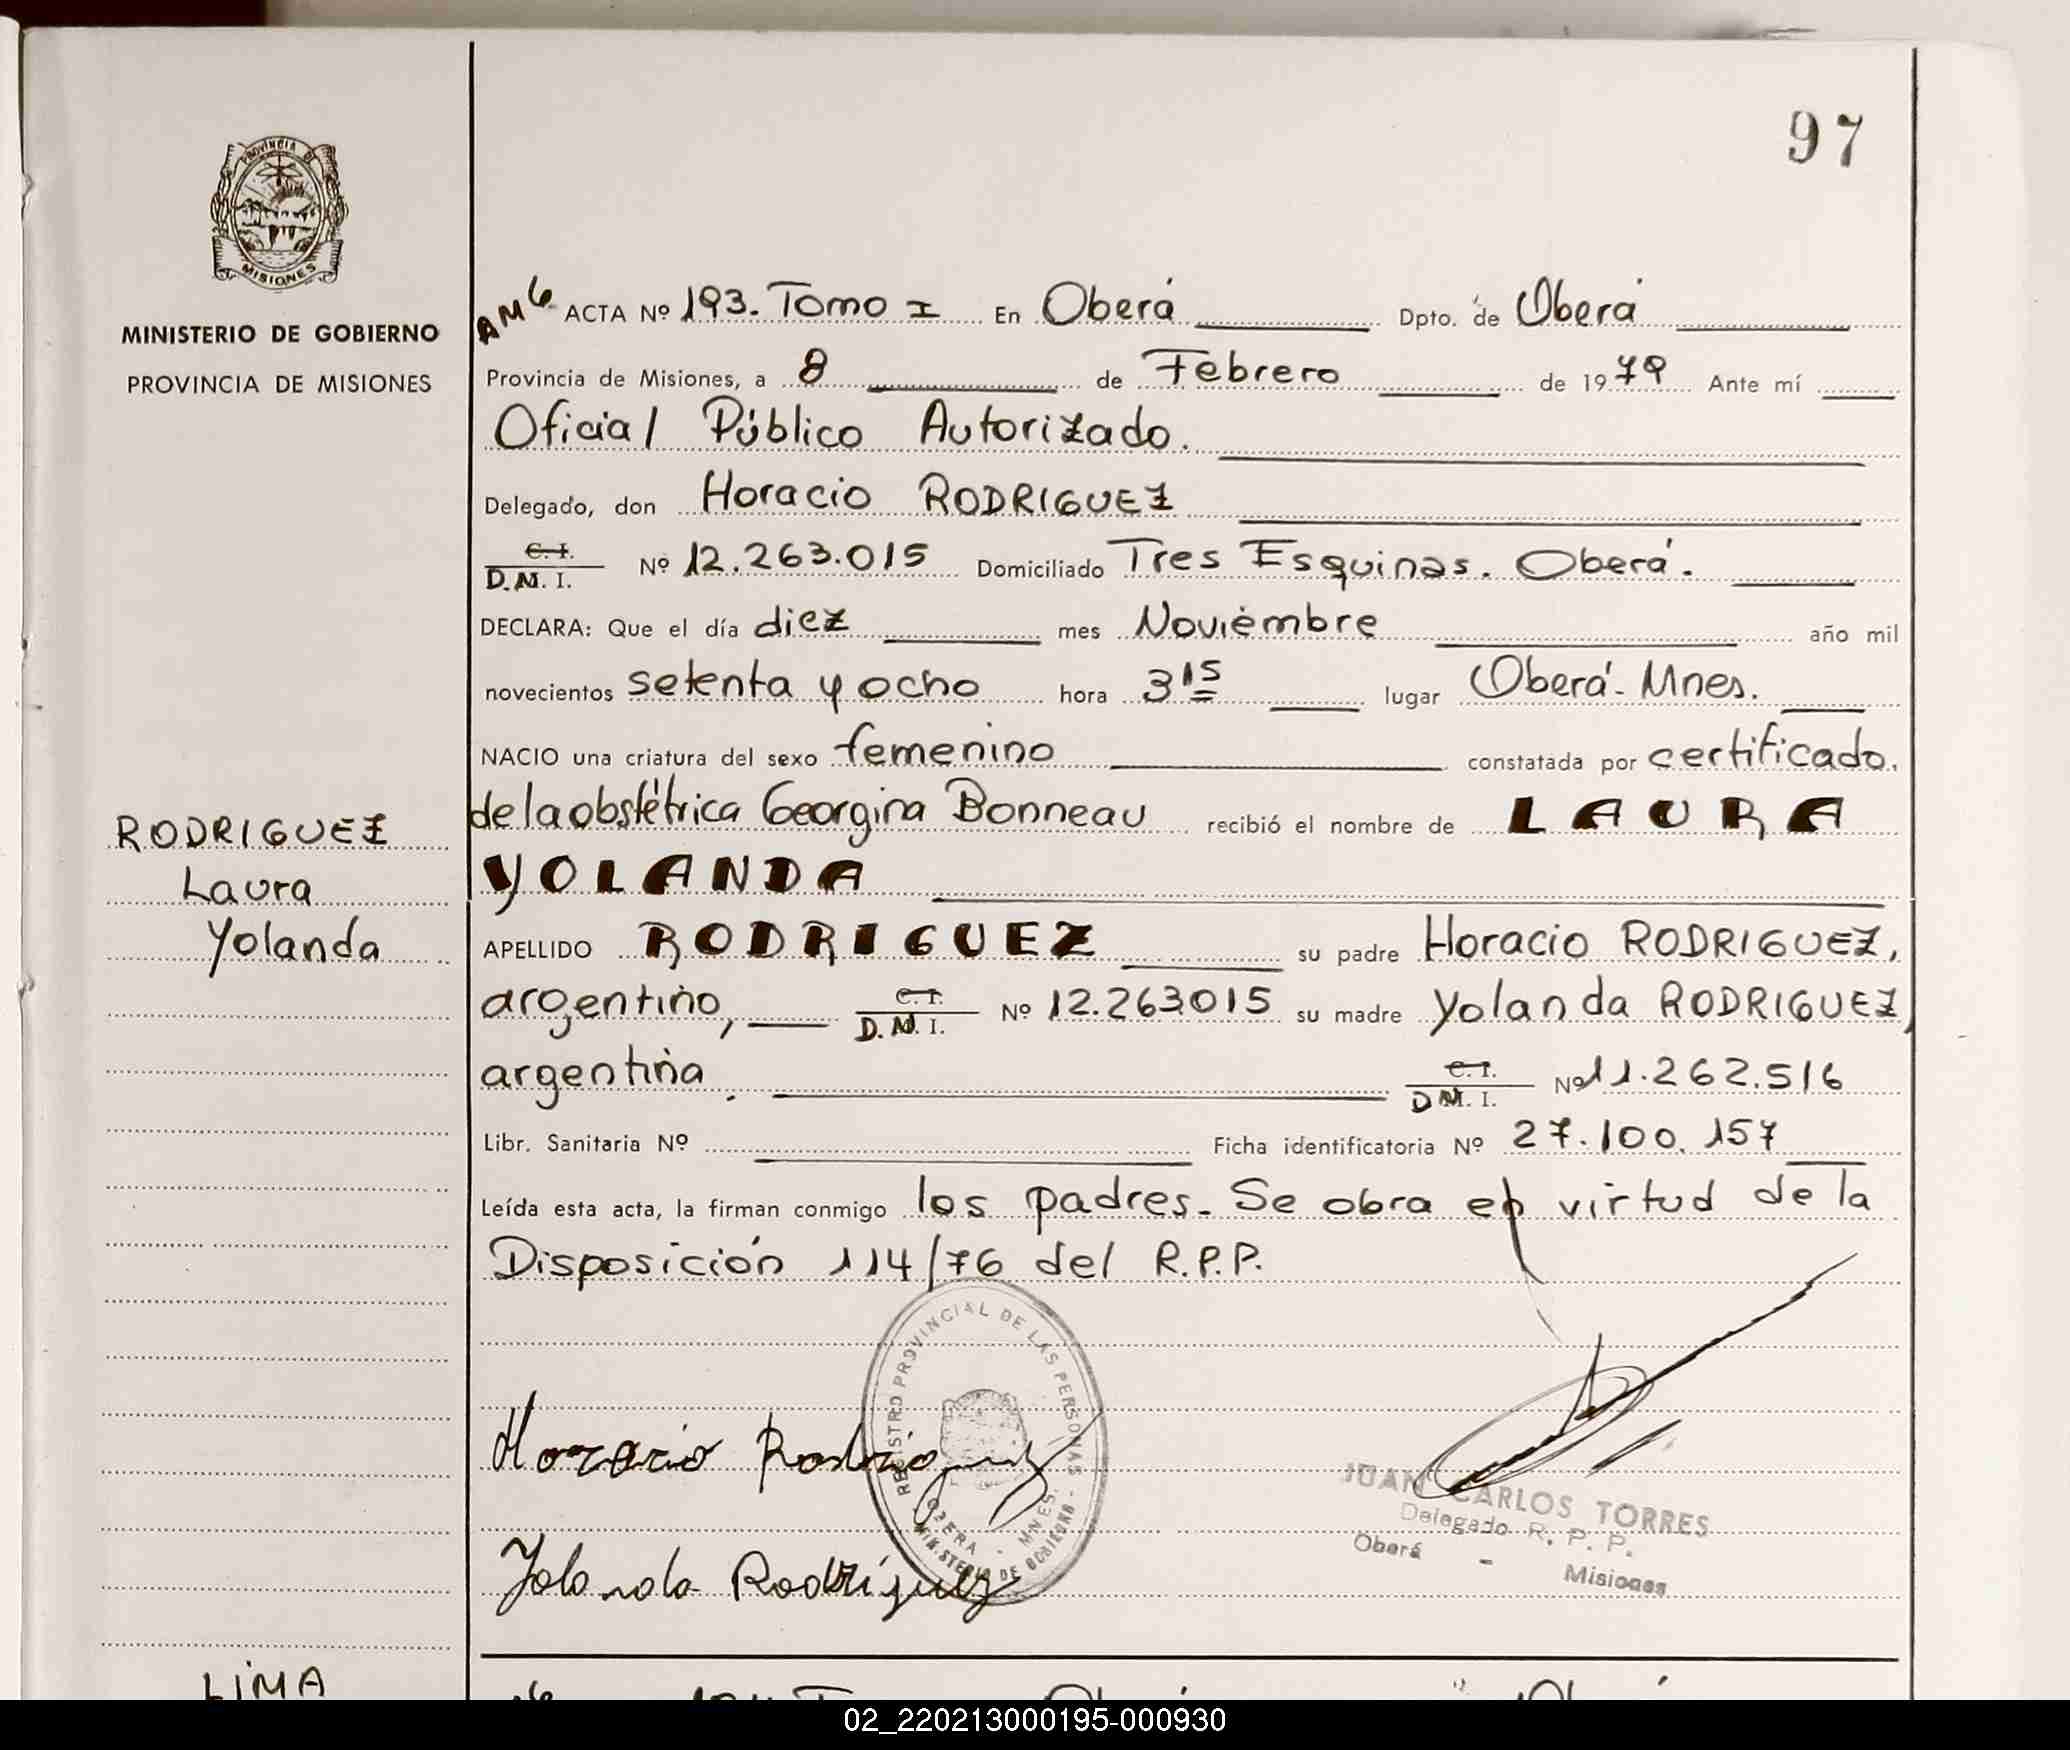 97
PROVINCIA DE
MISIONES
MINISTERIO DE GOBIERNO
PROVINCIA DE MISIONES
AM6 ACTA Nº 193. Tomo I En Oberá Dpto. de Oberá
Provincia de Misiones, a 8 de Febrero de 1979 Ante mí
Oficial Público Autorizado.
Delegado, don Horacio RODRIGUEZ
C. I.
D.M. I. Nº 12.263.015 Domiciliado Tres Esquinas. Oberá.
DECLARA: Que el día diez mes Noviembre año mil
novecientos setenta y ocho hora 3 15 lugar Oberá - Mnes.
NACIO una criatura del sexo femenino constatada por certificado.
de la obstétrica Georgina Bonneau recibió el nombre de LAURA
YOLANDA
RODRIGUEZ
Laura
Yolanda
APELLIDO RODRIGUEZ su padre Horacio RODRIGUEZ,
argentino, C. I.
D.M. I. Nº 12.263015 su madre Yolanda RODRIGUEZ,
argentina. C. I.
D M. I. Nº 11.262.516
Libr. Sanitaria Nº Ficha identificatoria Nº 27.100.157
Leída esta acta, la firman conmigo los padres. Se obra en virtud de la
Disposición 114/76 del R.P.P.
REGISTRO PROVINCIAL DE LAS PERSONAS
OBERA - MNES.
MINISTERIO DE GOBIERNO
Horacio Rodriguez
Yolanda Rodríguez
JUAN CARLOS TORRES
Delegado R. P. P.
Oberá - Misiones
LIMA
02_220213000195-000930